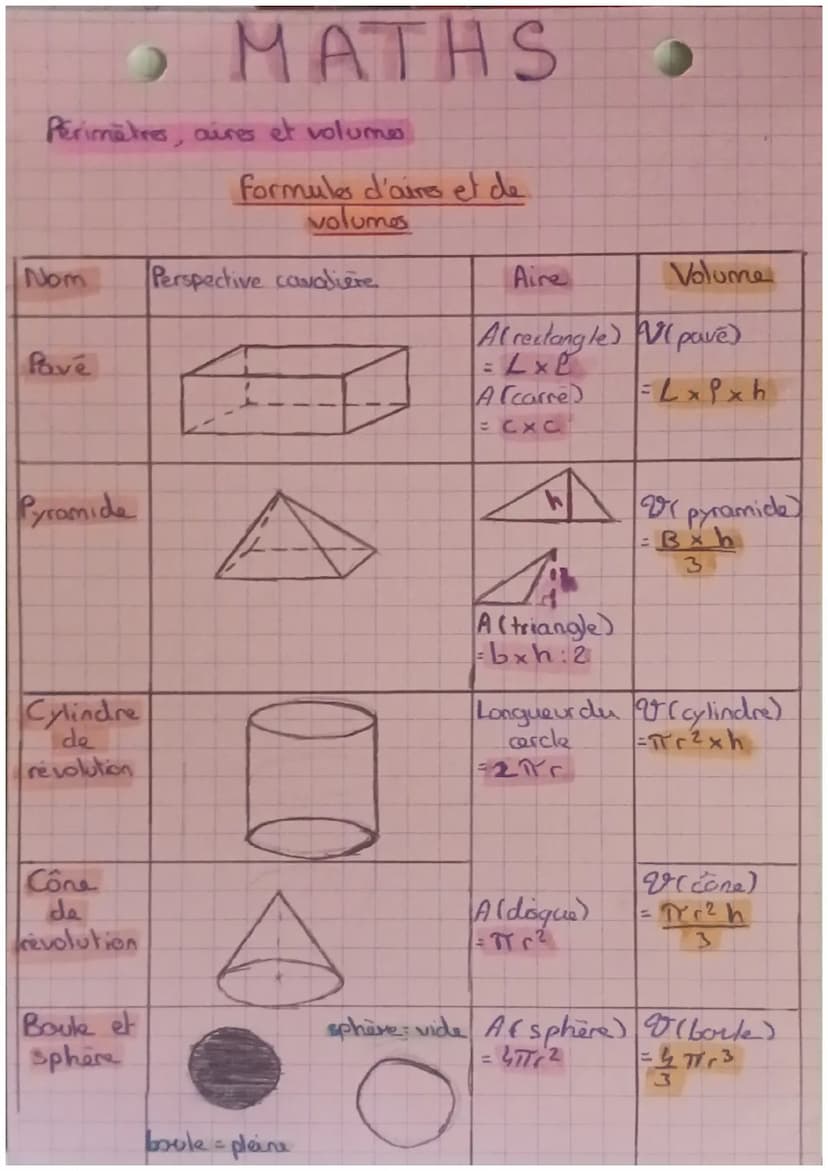 MATHS
Périmètres, aires et volumes
Formules d'aires et de
volumes
Nom
Perspective cavalière
Aire
Volume
Pavé
A(rectangle)
= L x l
A(carré)
= c x c
V(pavé)
= L x l x h
Pyramide
h
h
A(triangle)
= b x h : 2
V(pyramide)
= B x h
3
Cylindre
de
révolution
Longueur du
cercle
= 2πr
V(cylindre)
= πr² x h
Cône
de
révolution
A(disque)
= πr²
V(cône)
= πr²h
3
Boule et
sphère
boule = pleine
sphère = vide
A(sphère)
= 4πr²
V(boule)
= 4 πr³
3